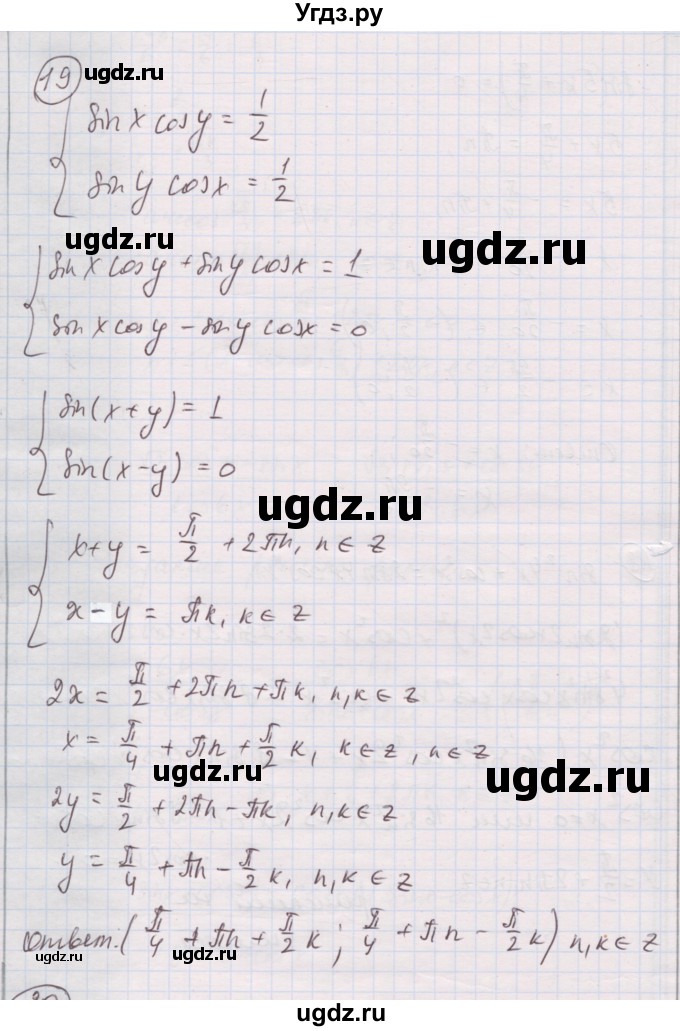 Угдз.ру
19
ugdz.ru
sin x cos y = 1/2
sin y cos x = 1/2
ugdz.ru
ugdz.ru
sin x cos y + sin y cos x = 1
sin x cos y - sin y cos x = 0
sin(x+y) = 1
sin(x-y) = 0
ugdz.ru
x+y = π/2 + 2πn, n ∈ z
x - y = πk, k ∈ z
2x = π/2 + 2πn + πk, n,k ∈ z
x = π/4 + πn + π/2 k, k ∈ z, n ∈ z
ugdz.ru
ugdz.ru
2y = π/2 + 2πn - πk, n,k ∈ z
y = π/4 + πn - π/2 k, n,k ∈ z
ответ: (π/4 + πn + π/2 k; π/4 + πn - π/2 k) n,k ∈ z
ugdz.ru
ugdz.ru
Угдз.ру